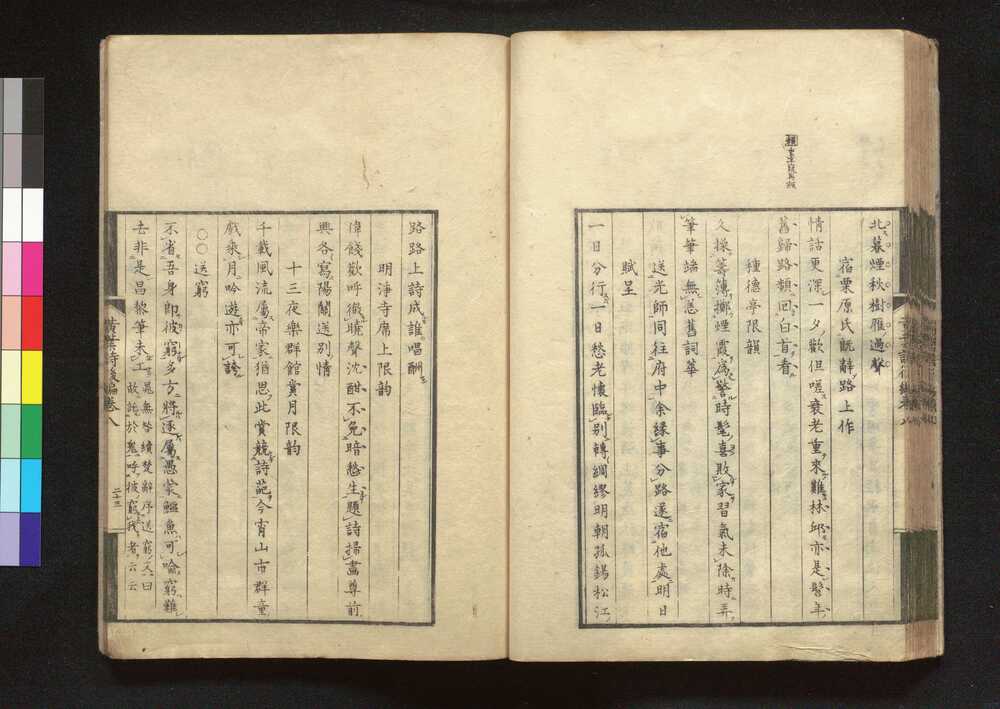 北暮煙秋樹雁過聲
宿栗原氏既辭路上作
情話更深一夕歡但嗟衰老重來難林邱亦是髫年
舊歸路頻回白首看
種德亭限韻
久操籌簿擲煙霞為警時髦喜敗家習氣未除時弄
筆筆端無忘舊詞華
送光師同往府中余緣事分路遂宿他處明日
賦呈
一日分行一日愁老懷臨別轉綢繆明朝孤錫松江
路路上詩成誰唱酬
明淨寺席上限韵
偉餞歡呼徹曉聲沈酣不免暗愁生題詩掃畫尊前
興各寫陽關送別情
十三夜樂群館賞月限韵
千載風流屬帝家猶思此賞競詩葩今宵山市群童
戲乘月吟遊亦可誇
○○送窮
不省吾身即彼窮多方將逐屬愚蒙鱷魚可喻窮難
去非是昌黎筆未工
晁無咎續楚辭序送窮文曰
故託於鬼呼彼窮我者云云
黃葉詩後編卷八
二十三